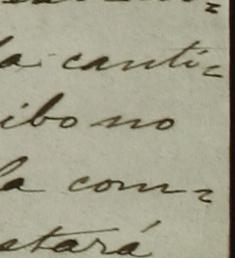 la canti-
ibo no
la com-
stará